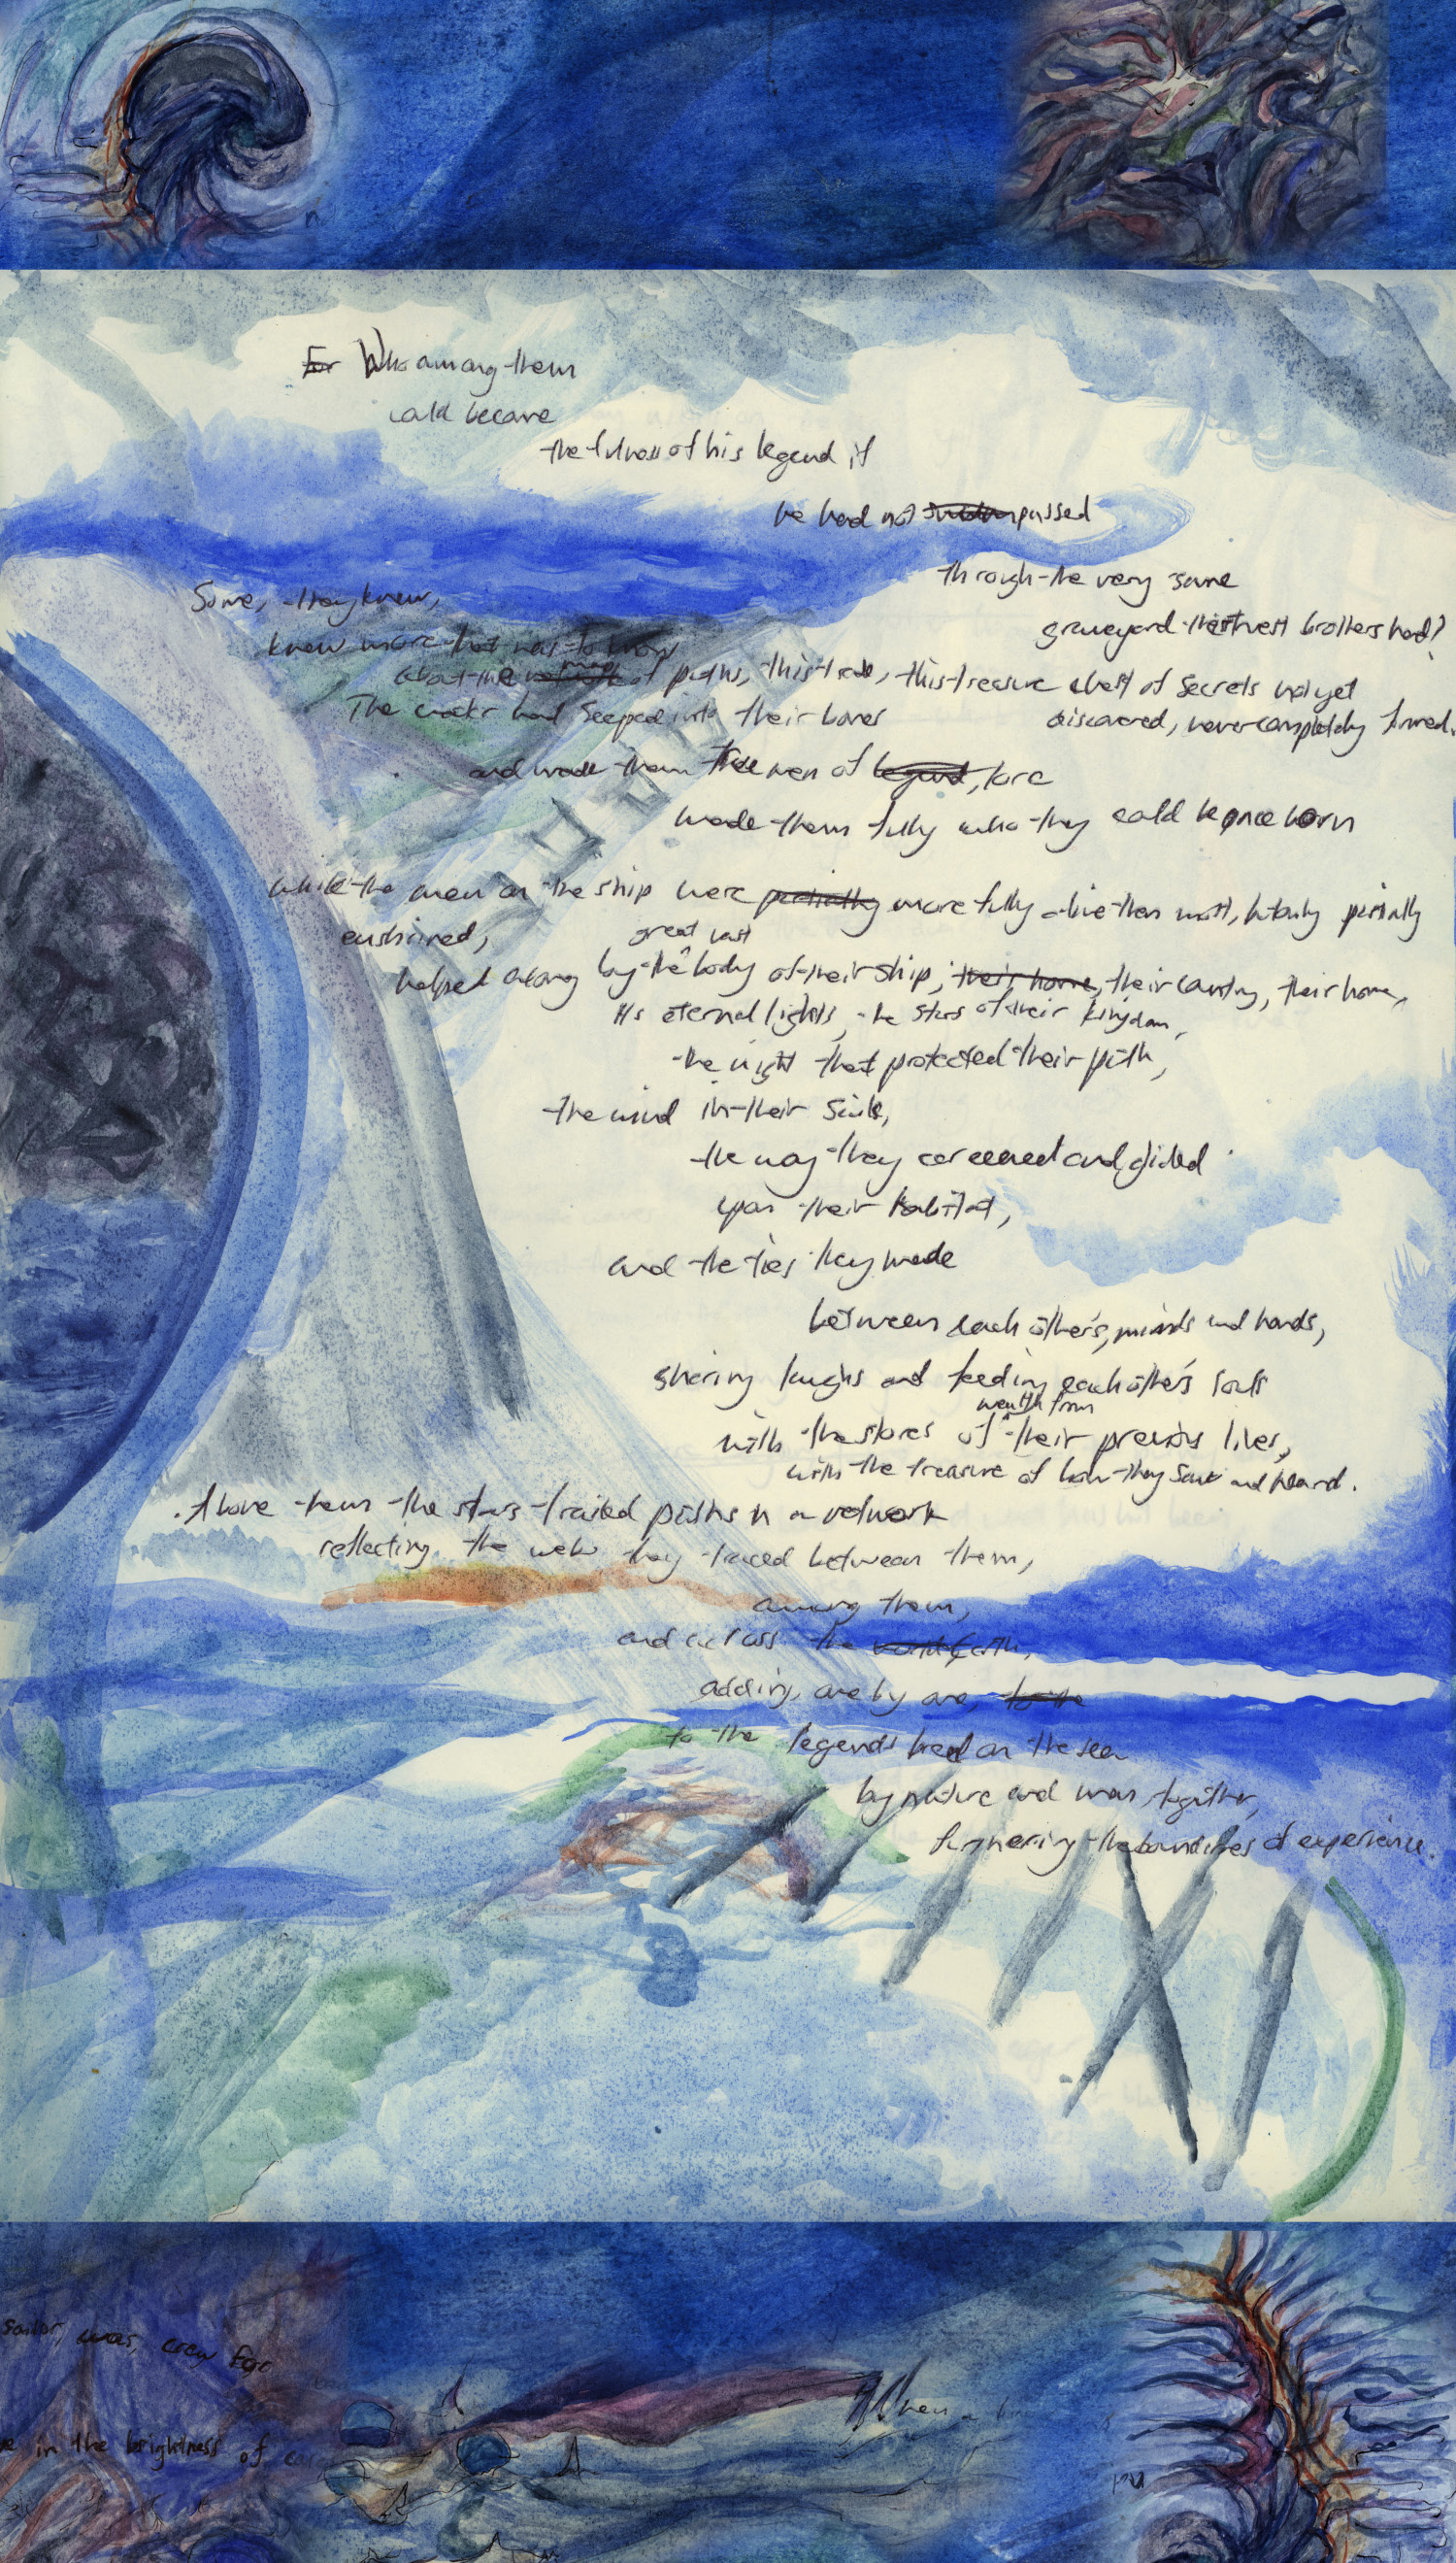 For Who among them
could become
the fulness of his legend if
he had not passed
through the very same
graveyard brothers had?
Some, they knew,
knew more that was to know
about the map of paths, this trade, this treasure chest of secrets not yet
discovered, never completely formed.
The had seeped into their bones
and made them true men of legend, lore
made them fully who they could be once born
while the men on the ship were partially more fully alive than most, but only partially
enshrined,
great vast
helped along by the body of their ship, their home, their country, their home,
its eternal lights, the stars of their kingdom,
the night that protected their path,
the wind in their sails,
the way they careened and glided
upon their habitat,
and the ties they made
between each other's, minds and hands,
sharing laughs and feeding each other's souls
wealth from
with the stores of their previous lives,
with the treasure of how they saw and heard.
Above them the stars trailed paths in a network
reflecting the web they traced between them,
among them,
and across the earth,
adding, one by one,
to the legends bred on the sea
by nature and man, together,
furthering the boundaries of experience.
sailor, was, crew
in the brightness of
When a